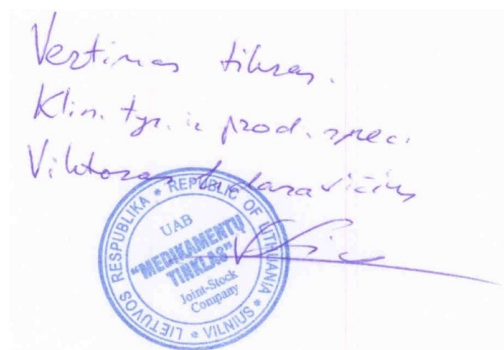 Vertimas tikras.
Klin. tyr. ir prod. spec.
Viktoras
LIETUVOS RESPUBLIKA * REPUBLIC OF LITHUANIA * VILNIUS *
UAB
"MEDIKAMENTŲ
TINKLAS"
Joint-Stock
Company